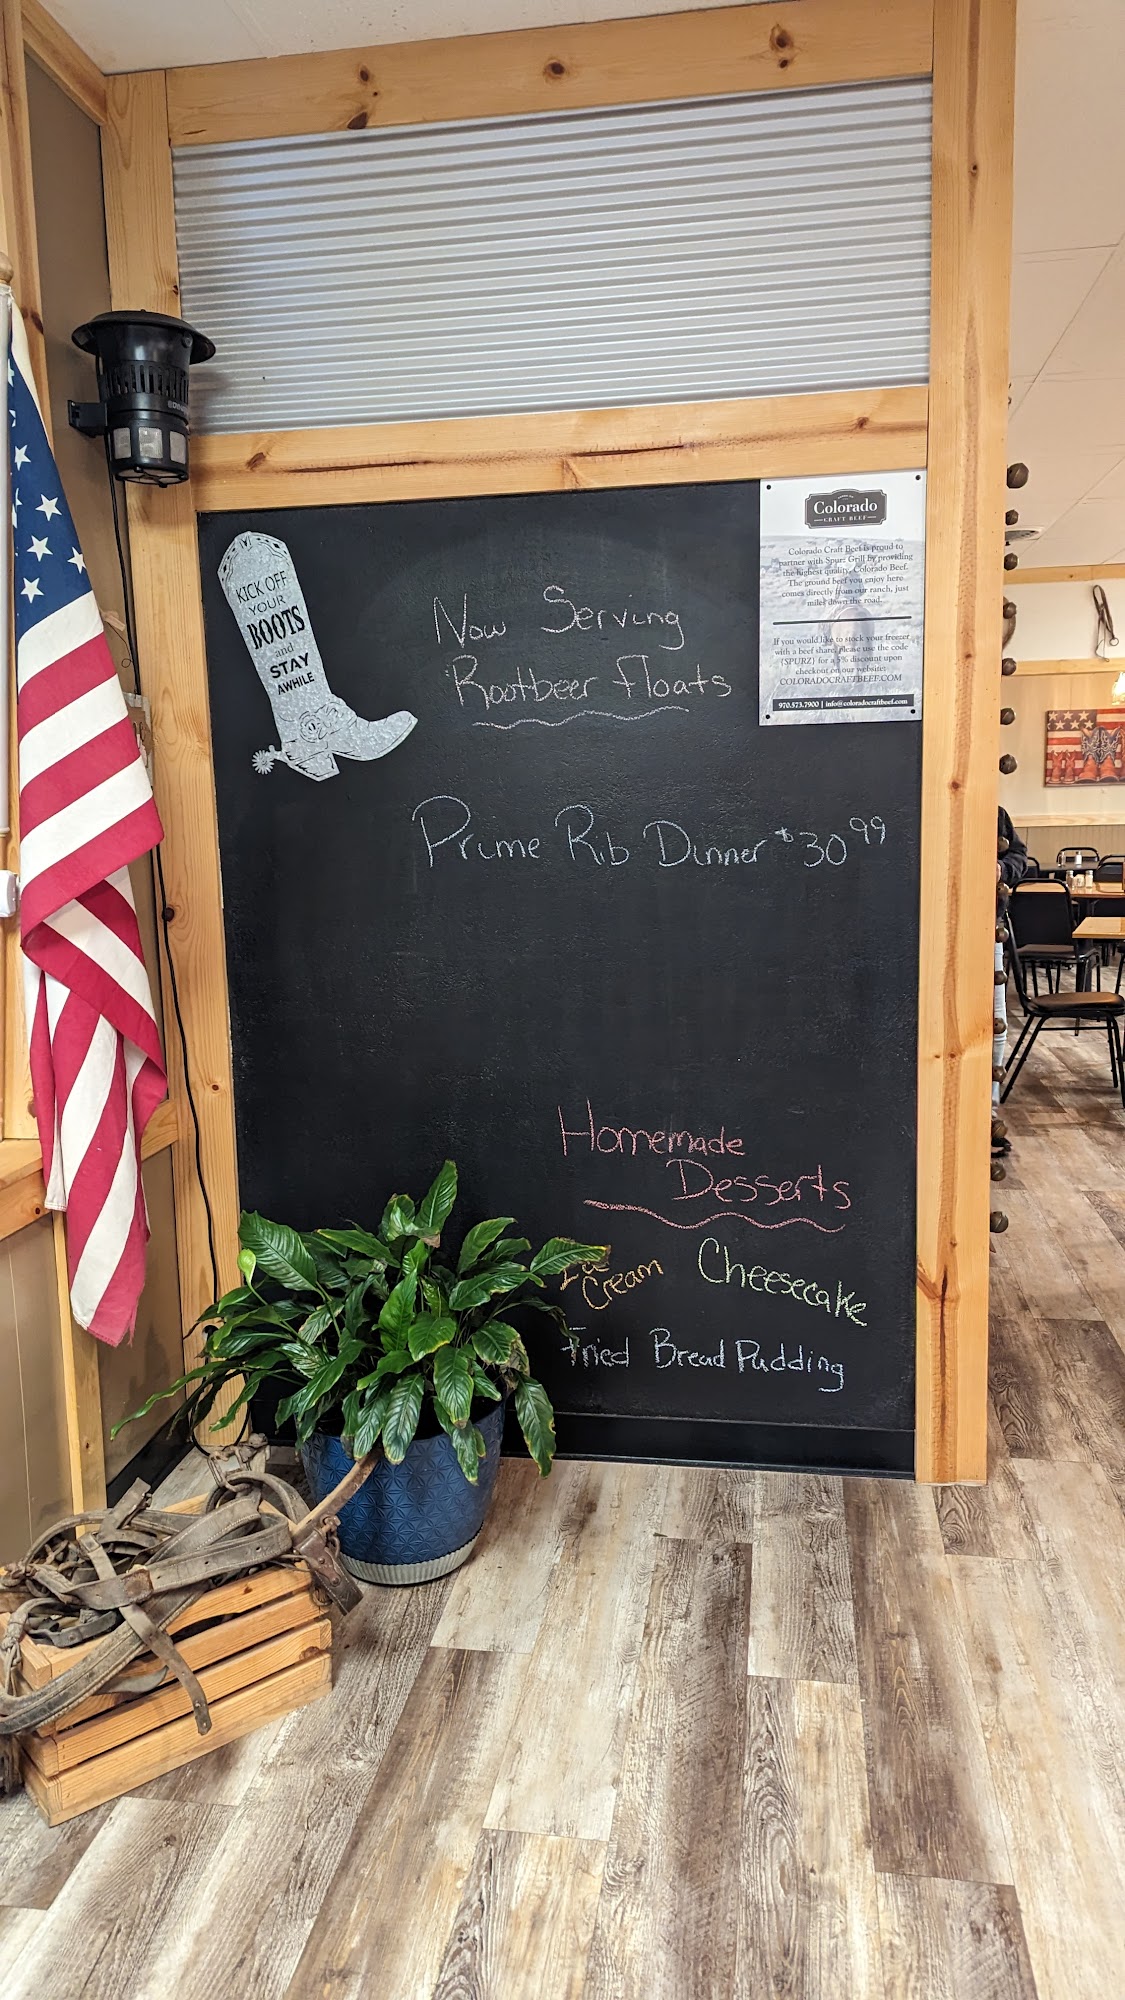 KICK OFF
YOUR
BOOTS
and
STAY
AWHILE
Now Serving
Rootbeer Floats
Prime Rib Dinner $30 99
Colorado
CRAFT BEEF
Colorado Craft Beef is proud to
partner with Spurz Grill by providing
the highest quality, Colorado Beef.
The ground beef you enjoy here
comes directly from our ranch, just
miles down the road.
If you would like to stock your freezer
with a beef share, please use the code
{SPURZ} for a 5% discount upon
checkout on our website:
COLORADOCRAFTBEEF.COM
970.573.7900 | info@coloradocraftbeef.com
Homemade
Desserts
Ice
Cream
Cheesecake
Fried Bread Pudding